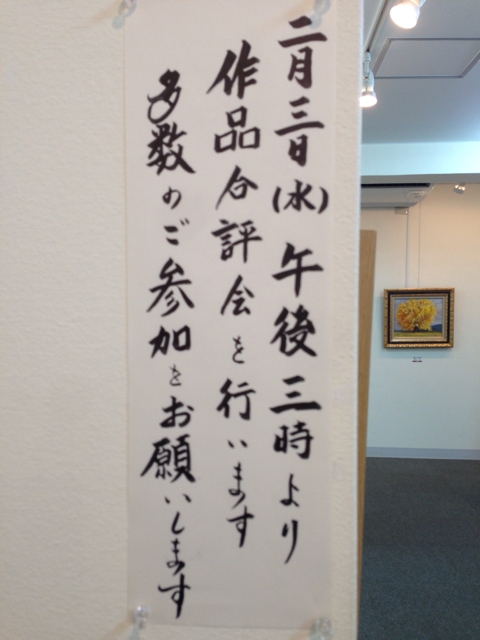 二月三日(水)午後三時より
作品合評会を行います
多数のご参加をお願いします